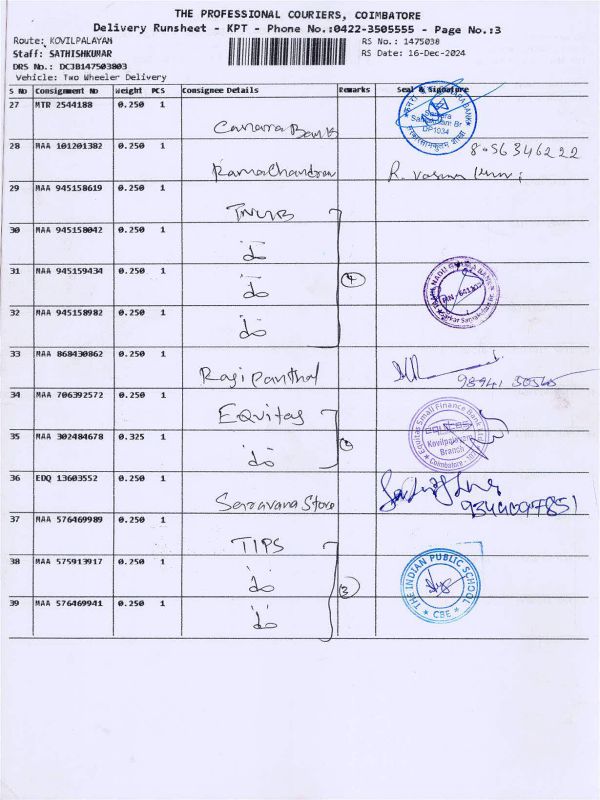 THE PROFESSIONAL COURIERS, COIMBATORE
Delivery Runsheet - KPT - Phone No.:0422-3505555 - Page No.:3
Route: KOVILPALAYAN RS No.: 1475038
Staff: SATHISHKUMAR RS Date: 16-Dec-2024
DRS No.: DCJB147503803
Vehicle: Two Wheeler Delivery
S No Consignment No Weight PCS Consignee Details Remarks Seal & Signature
27 MTR 2544188 0.250 1 Canara Bank
DP1034
28 MAA 101201382 0.250 1 Ramachandran 8056346222
29 MAA 945158619 0.250 1 TNUB
30 MAA 945158042 0.250 1 do
31 MAA 945159434 0.250 1 do 4
32 MAA 945158982 0.250 1 do
33 MAA 868430862 0.250 1 Raji Panthal
34 MAA 706392572 0.250 1 Equitas
Equitas Small Finance Bank Ltd
equitas
Kovilpalayam
Branch
35 MAA 302484678 0.325 1 do 2
36 EDQ 13603552 0.250 1 Saravana Store
37 MAA 576469989 0.250 1 TIPS
38 MAA 575913917 0.250 1 do 3
THE INDIAN PUBLIC SCHOOL
CBE
39 MAA 576469941 0.250 1 do